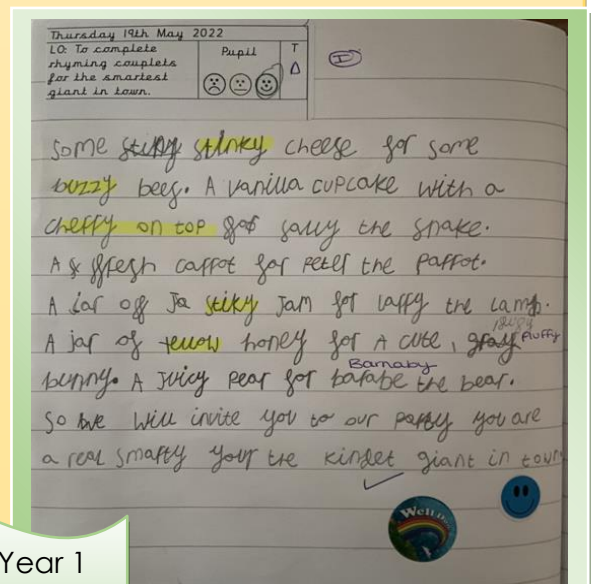 Thursday 19th May 2022
LO: To complete rhyming couplets for the smartest giant in town.
Pupil
T
I
some stinky cheese for some
buzzy bees. A vanilla cupcake with a
cherry on top for sally the snake.
A fresh carrot for Peter the Parrot.
A jar of stiky Jam for larry the Lamb.
A jar of yellow honey for A cute, fluffy
bunny. A Juicy pear for barabe the bear.
Barnaby
So we will invite you to our party you are
a real smarty your the kindet giant in town
Well Done
Year 1